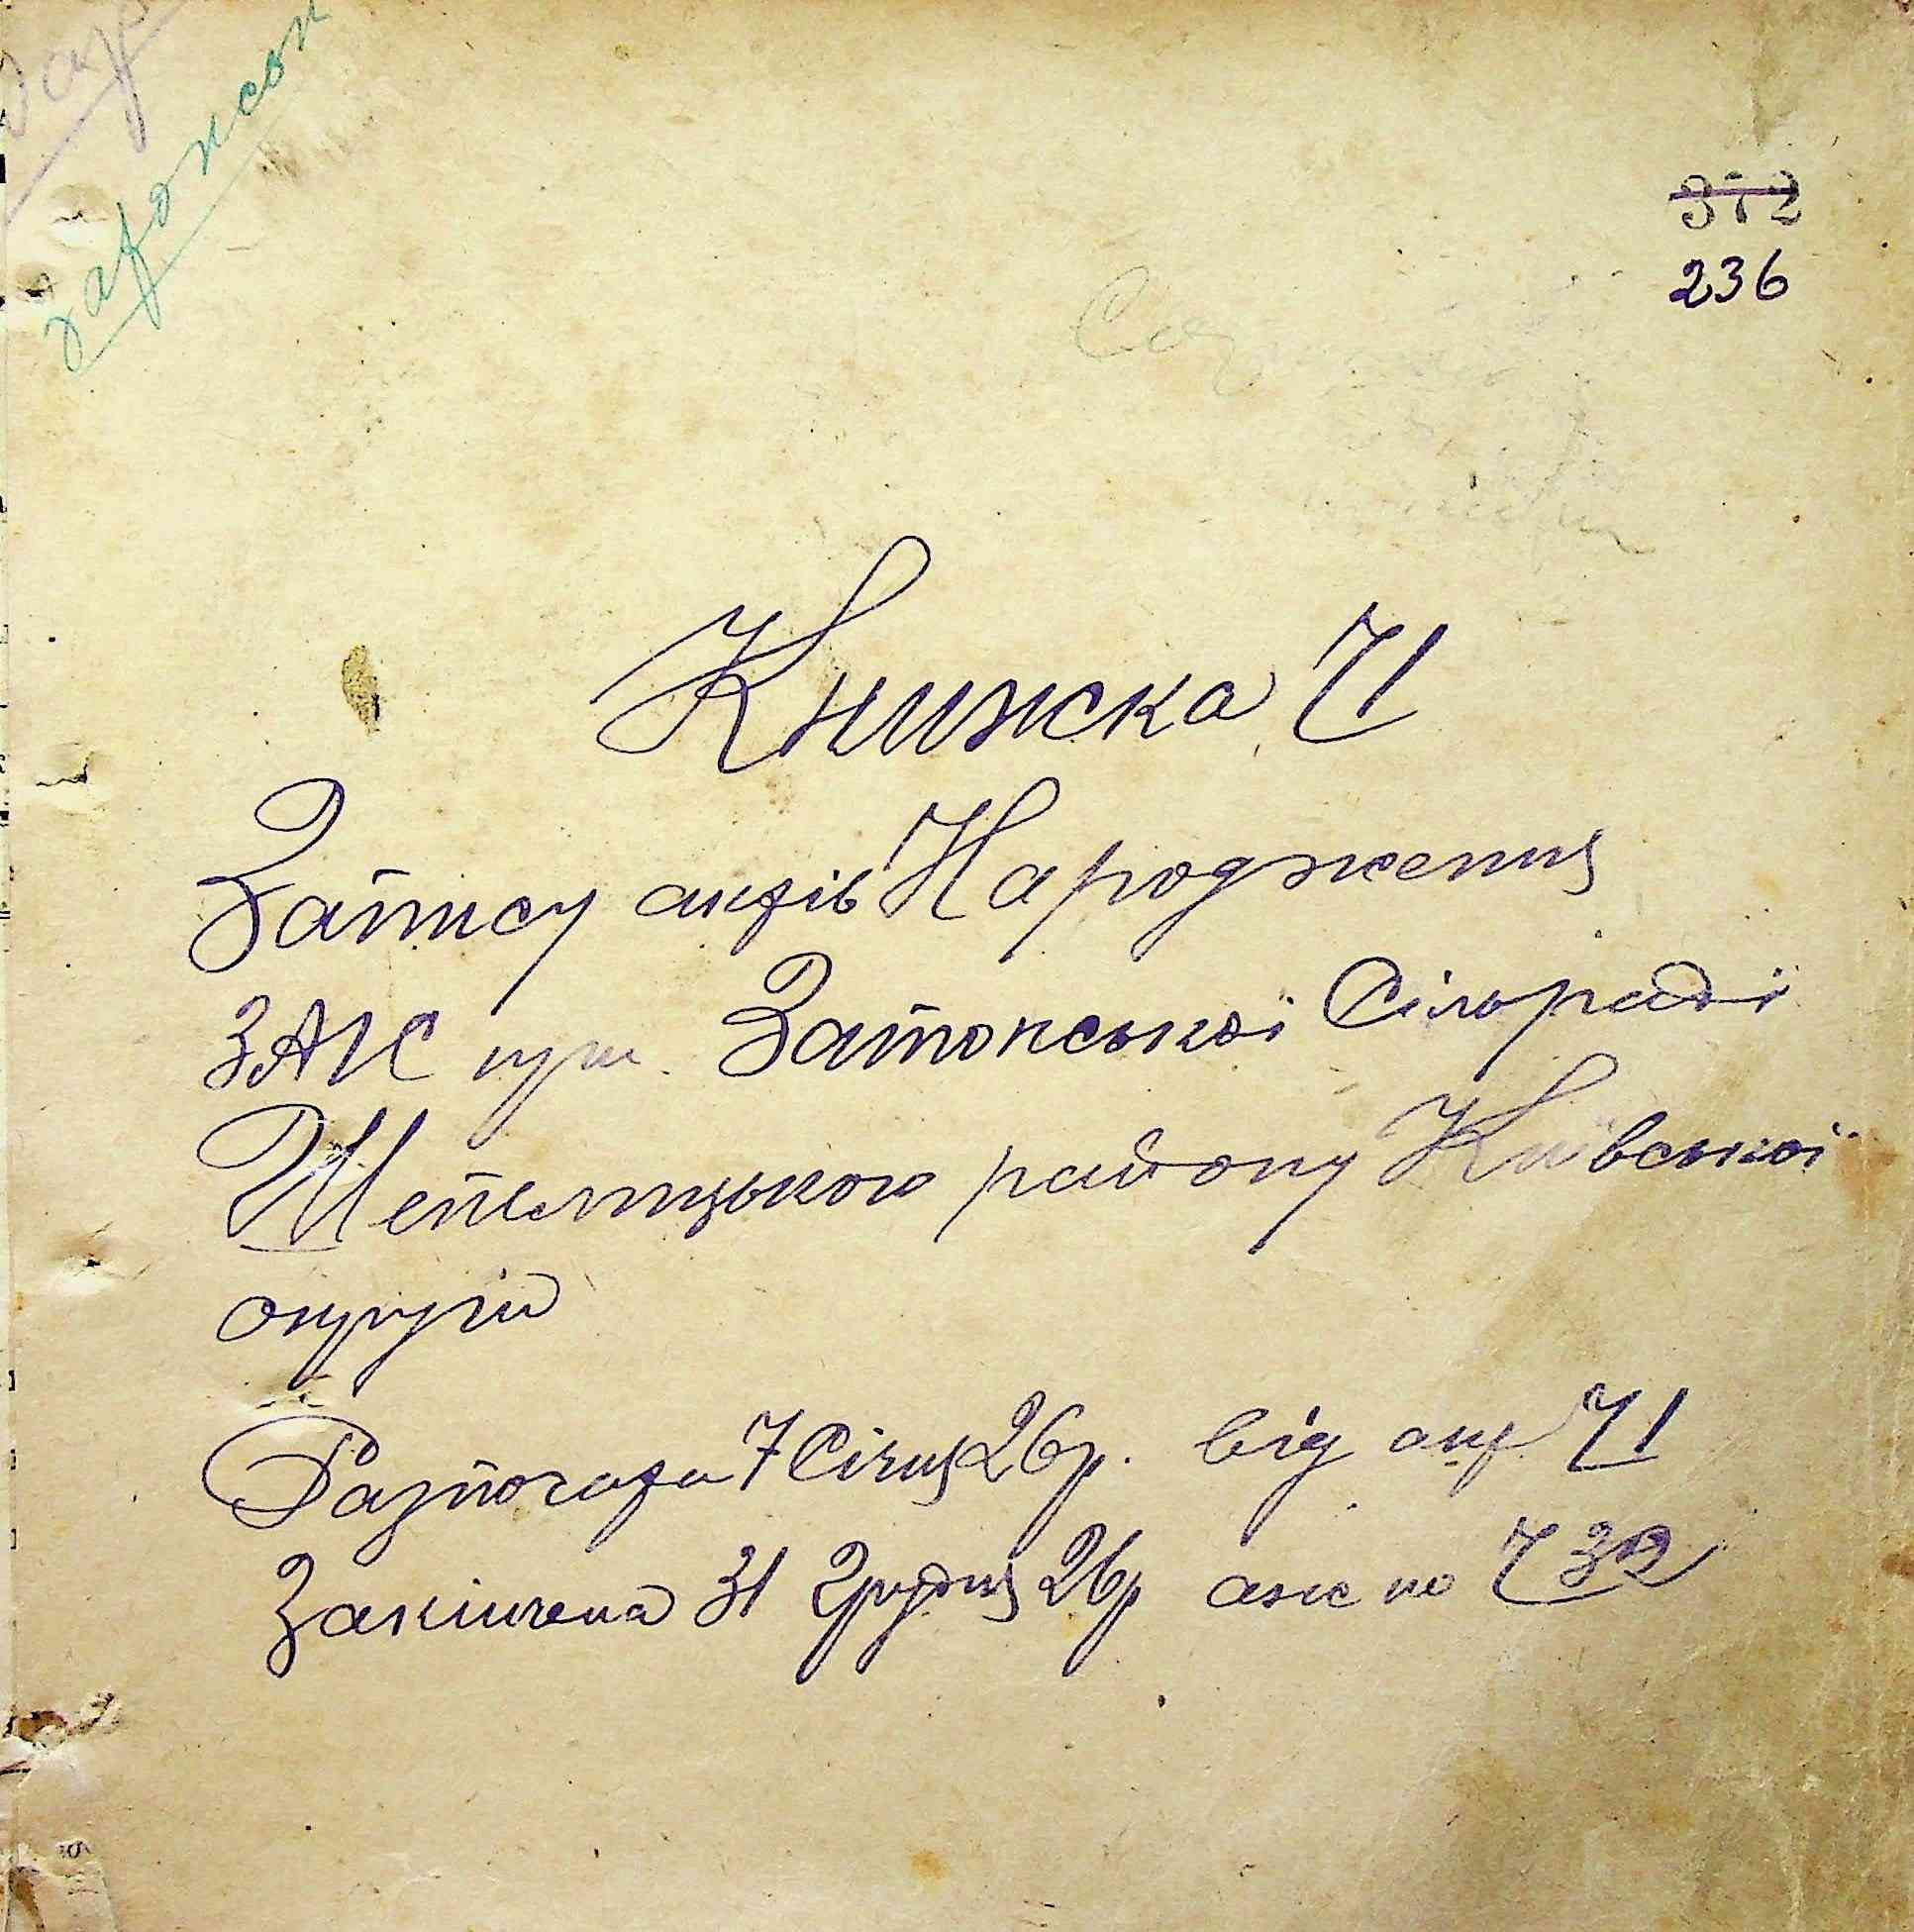 затонськ
372
236
Книжка Ч1
Запису актів Народження
ЗАГС при Затонської Сільради
Шепелицького району Київської
округи
Разпочата 7 Січня 26 р. від акт Ч1
Закінчена 31 Грудня 26 р аж по Ч 32